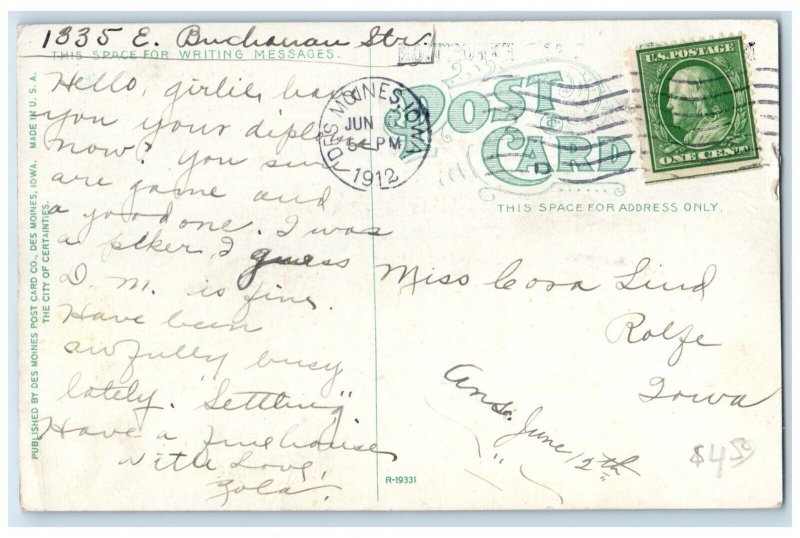 1335 E. Buchanan Str.
THIS SPACE FOR WRITING MESSAGES.
Hello, girlie, have
you your diploma
now? You sure
are game and
a good one. I was
a I guess
D. M. is fine.
Have been
awfully busy
lately. "Settling"
Have a fine house
With Love,
Zola.
PUBLISHED BY DES MOINES POST CARD CO., DES MOINES, IOWA. MADE IN U.S.A.
THE CITY OF CERTAINTIES.
DES MOINES, IOWA
JUN
5-PM
1912
D
POST
CARD
U.S. POSTAGE
ONE CENT
THIS SPACE FOR ADDRESS ONLY.
Miss Cora Lind
Rolfe
Iowa
Ans. June 12th
$4.50
R-19331